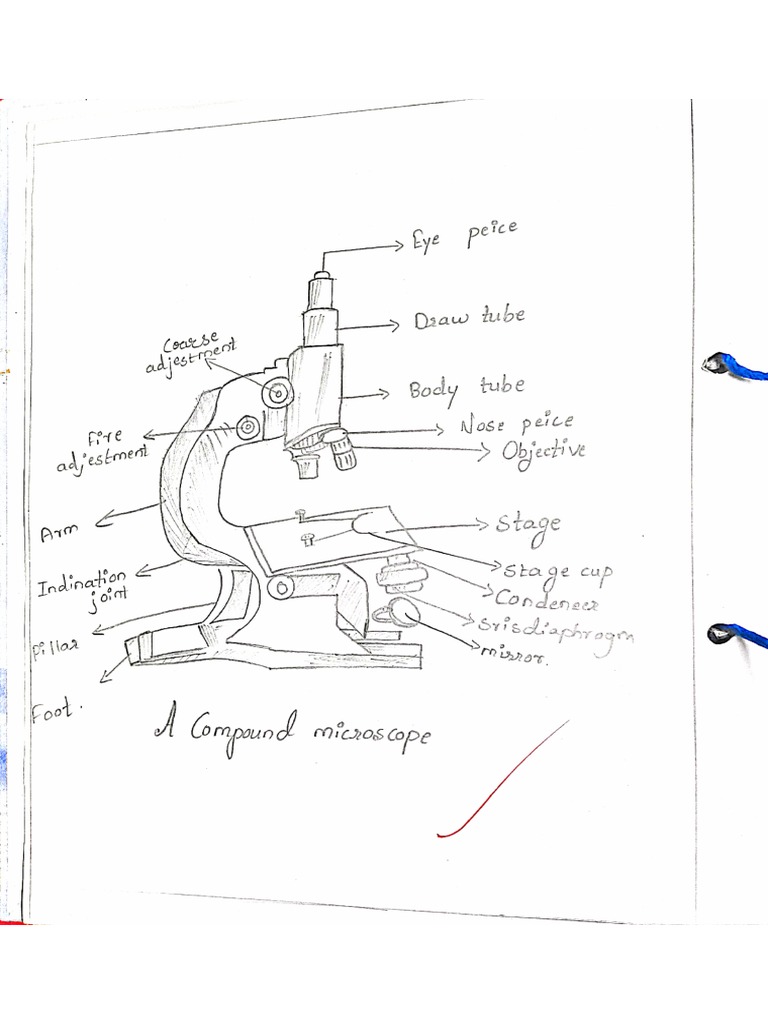 Eye peice
Draw tube
Coarse
adjestment
Body tube
Nose peice
Objective
Fire
adjestment
Stage
Arm
Stage cup
Indination
joint
Condeneer
Srisdiaphrogm
Pillar
mirror.
Foot.
A Compound microscope